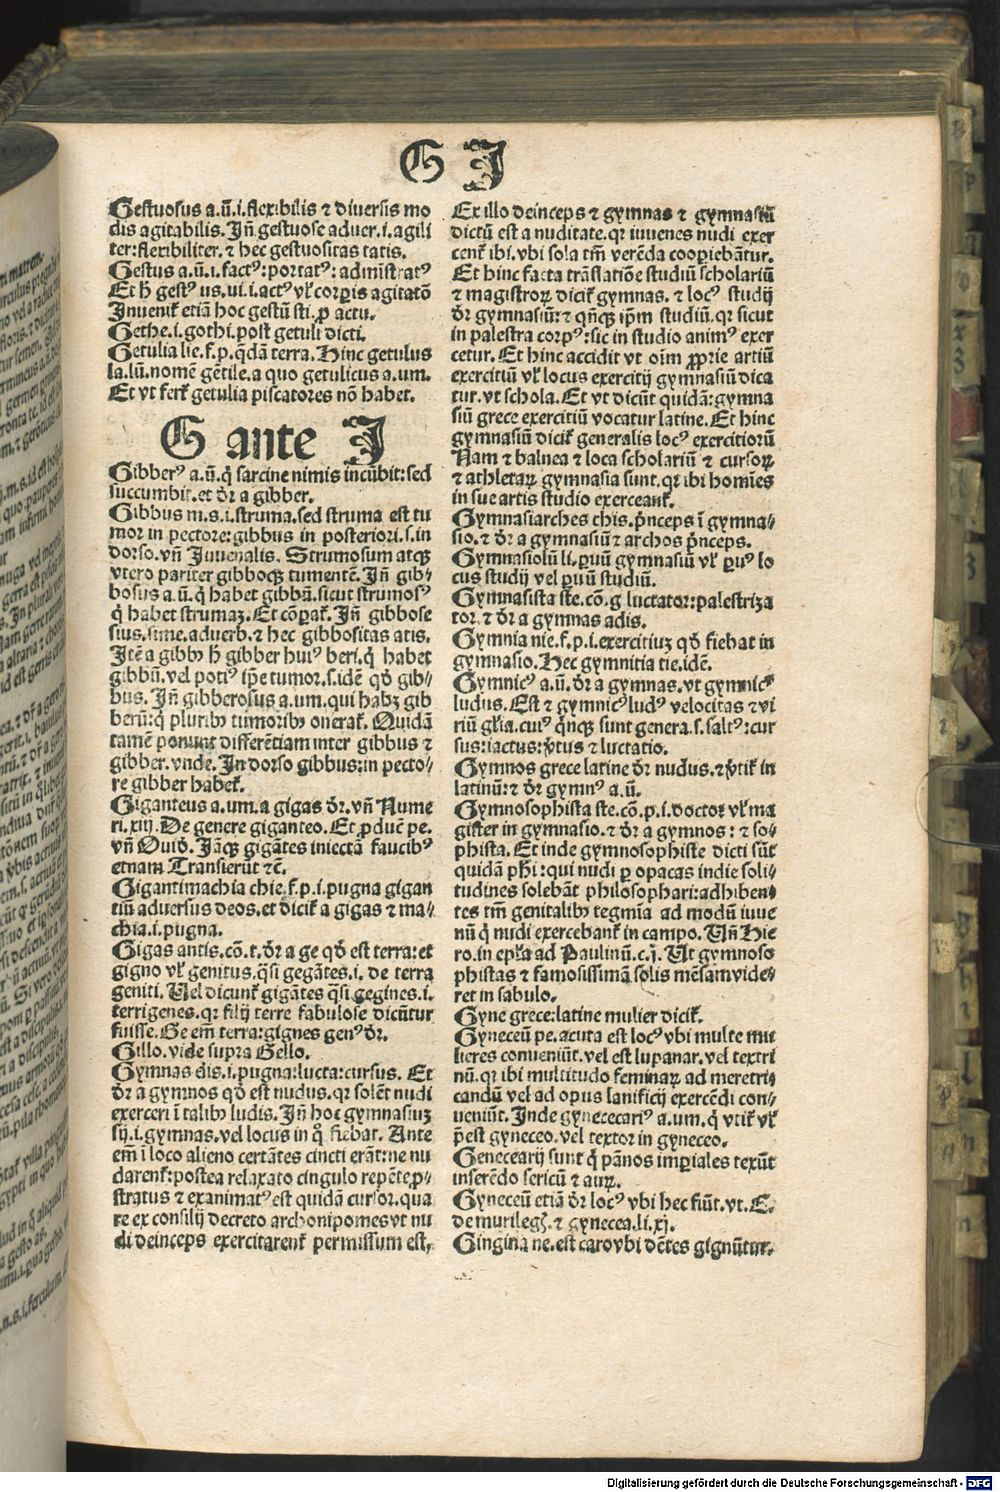 G I
Gestuosus a.ũ.i.flexibilis ⁊ diuersis mo
dis agitabilis. Iñ gestuose aduer.i.agili
ter:flexibiliter.⁊ hec gestuositas tatis.
Gestus a.ũ.i.factꝰ:portatꝰ:admistratꝰ
Et h̄ gestꝰ us.ui.i.actꝰ vl̓ corꝑis agitatõ
Inuenit̃ etiã hoc gestũ sti.ꝓ actu.
Gethe.i.gothi.post getuli dicti.
Getulia lie.f.p.q̃dã terra. Hinc getulus
la.lũ.nomẽ gẽtile.a quo getulicus a.um.
Et vt fert̃ getulia piscatores nõ habet.
G ante I
Gibberꝰ a.ũ.q̇ sarcine nimis incũbit:sed
succumbit.et d̄r a gibber.
Gibbus m.s.i.struma.sed struma est tu
mor in pectore:gibbus in posteriori.s.in
dorso.vñ Iuuenalis. Strumosum atqꝫ
vtero pariter gibboqꝫ tumentẽ. Iñ gib⸗
bosus a.ũ.q̇ habet gibbũ.sicut strumosꝰ
q̇ habet strumaꝫ. Et cõꝑat̃. Iñ gibbose
sius.sime.aduerb.⁊ hec gibbositas atis.
Itẽ a gibbꝰ h̄ gibber huiꝰ beri.q̇ habet
gibbũ.vel potiꝰ ip̄e tumor.s.idẽ qd̓ gib⸗
bus. Iñ gibberosus a.um.qui habꝫ gib
berũ:q̇ pluribꝰ tumoribꝰ onerat̃. Quidã
tamẽ ponunt differẽtiam inter gibbus ⁊
gibber.vnde. In dorso gibbus:in pecto⸗
re gibber habet̃.
Giganteus a.um.a gigas d̄r.vñ Nume
ri.xiij. De genere giganteo. Et ꝓducẽ pe.
vñ Ouid̓. Iãqꝫ gigãtes iniectã faucibꝰ
etnam Transierũt ⁊c̃.
Gigantimachia chie.f.p.i.pugna gigan
tiũ aduersus deos.et dicit̃ a gigas ⁊ ma⸗
chia.i.pugna.
Gigas antis.cõ.t.d̄r a ge qd̓ est terra:et
gigno vl̓ genitus.q̃si gegãtes.i. de terra
geniti. Uel dicunt̃ gigãtes q̃si gegines.i.
terrigenes.qꝛ filij terre fabulose dicũtur
fuisse. Ge em̃ terra:gignes genꝰ d̄r.
Gillo.vide supra Gello.
Gymnas dis.i.pugna:lucta:cursus. Et
d̄r a gymnos qd̓ est nudus.qꝛ solẽt nudi
exerceri ĩ talibꝰ ludis. Iñ hoc gymnasiuꝫ
sij.i.gymnas.vel locus in q̊ fiebat. Ante
em̃ ĩ loco alieno certãtes cincti erãt:ne nu
darent̃:postea relaxato cingulo repẽte ꝓ⸗
stratus ⁊ exanimatꝰ est quidã cursor.qua
re ex consilij decreto archonipomes vt nu
di deinceps exercitarent̃ permissum est,
Ex illo deinceps ⁊ gymnas ⁊ gymnasiũ
dictũ est a nuditate.qꝛ iuuenes nudi exer
cent̃ ibi.vbi sola tm̃ verẽda cooꝑiebãtur.
Et hinc facta trãslatiõe studiũ scholariũ
⁊ magistroꝝ dicit̃ gymnas. ⁊ locꝰ studij
d̄r gymnasiũ:⁊ qñqꝫ ip̄m studiũ.qꝛ sicut
in palestra corpꝰ:sic in studio animꝰ exer
cetur. Et hinc accidit vt oĩm ꝓprie artiũ
exercitiũ vl̓ locus exercitij gymnasiũ dica
tur.vt schola. Et vt dicũt quidã:gymna
siũ grece exercitiũ vocatur latine. Et hinc
gymnasiũ dicit̃ generalis locꝰ exercitiorũ
Nam ⁊ balnea ⁊ loca scholariũ ⁊ cursoꝝ
⁊ athletaꝝ gymnasia sunt.qꝛ ibi homĩes
in sue artis studio exerceant̃.
Gymnasiarches chis.p̃nceps ĩ gymna⸗
sio.⁊ d̄r a gymnasiũ ⁊ archos p̃nceps.
Gymnasiolũ li.ꝑuũ gymnasiũ vl̓ ꝑuꝰ lo
cus studij vel ꝑuũ studiũ.
Gymnasista ste.cõ.g luctator:palestriza
tor.⁊ d̄r a gymnas adis.
Gymnia nie.f.p.i.exercitiuꝫ qd̓ fiebat in
gymnasio. Hec gymnitia tie.idẽ.
Gymnicꝰ a.ũ.d̄r a gymnas.vt gymnicꝰ
ludus. Est ⁊ gymnicꝰ ludꝰ velocitas ⁊ vi
riũ gl̓ia.cuiꝰ q̃nqꝫ sunt genera.s.saltꝰ:cur
sus:iactus:v̓tus ⁊ luctatio.
Gymnos grece latine d̄r nudus.⁊ v̓tit̃ in
latinũ:⁊ d̄r gymnꝰ a.ũ.
Gymnosophista ste.cõ.p.i.doctor vl̓ ma
gister in gymnasio.⁊ d̄r a gymnos:⁊ so⸗
phista. Et inde gymnosophiste dicti sũt
quidã ph̓i:qui nudi ꝑ opacas indie soli⸗
tudines solebãt philosophari:adhiben⸗
tes tm̃ genitalibꝰ tegmĩa ad modũ iuue
nũ q̇ nudi exercebant̃ in campo. Uñ Hie
ro.in ep̓la ad Paulinũ.c.j. Ut gymnoso
phistas ⁊ famosissimã solis mẽsam vide⸗
ret in sabulo.
Gyne grece:latine mulier dicit̃.
Gyneceũ pe.acuta est locꝰ vbi multe mu
lieres conueniũt.vel est lupanar.vel textri
nũ.qꝛ ibi multitudo feminaꝝ ad meretri⸗
candũ vel ad opus lanificij exercẽdi con⸗
ueniũt. Inde gynececariꝰ a.um.q̇ vtit̃ vl̓
p̃est gyneceo.vel textor in gyneceo.
Genecearij sunt q̇ pãnos imꝑiales texũt
inserẽdo sericũ ⁊ auꝝ.
Gyneceũ etiã d̄r locꝰ vbi hec fiũt.vt. E.
de murileg̃.⁊ gynecea.li.xj.
Gingina ne.est caro vbi dẽtes gignũtur.
Digitalisierung gefördert durch die Deutsche Forschungsgemeinschaft - DFG